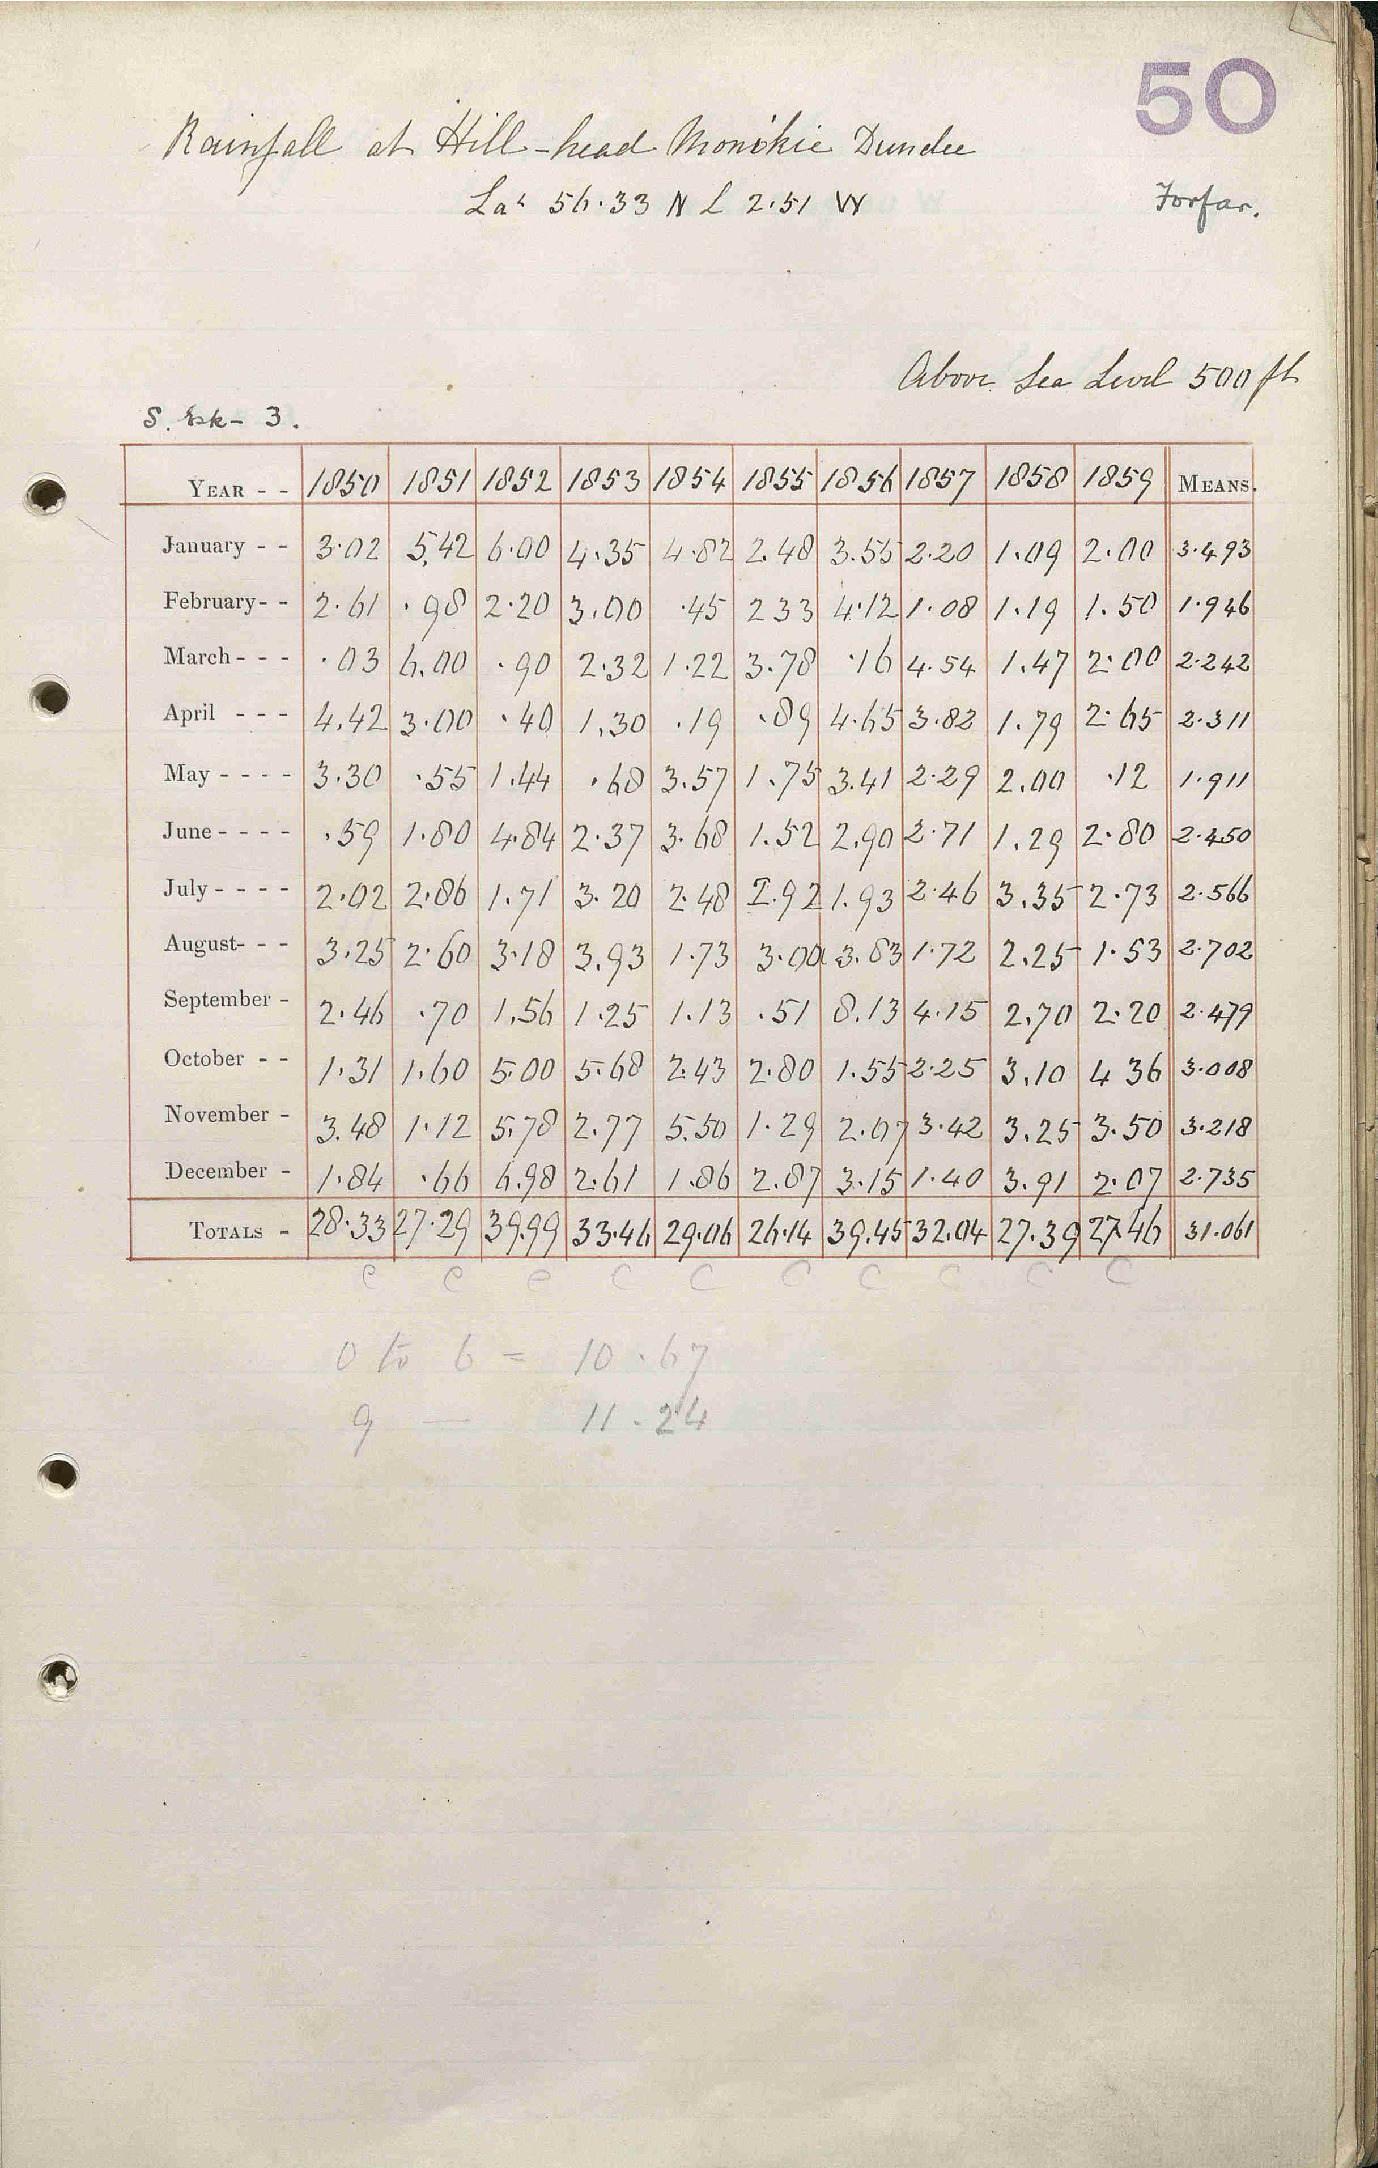 50
Rainfall at Hill-head Monikie Dundee
Lat 56.33 N L 2.51 W
Forfar.
Above Sea Level 500 ft
S. Esk - 3.
YEAR - - 1850 1851 1852 1853 1854 1855 1856 1857 1858 1859 MEANS.
January - - 3.02 5.42 6.00 4.35 4.82 2.48 3.55 2.20 1.09 2.00 3.493
February - - 2.61 .98 2.20 3.00 .45 2 33 4.12 1.08 1.19 1.50 1.946
March - - - .03 6.00 .90 2.32 1.22 3.78 .16 4.54 1.47 2.00 2.242
April - - - 4.42 3.00 .40 1.30 .19 .89 4.65 3.82 1.79 2.65 2.311
May - - - - 3.30 .55 1.44 .68 3.57 1.75 3.41 2.29 2.00 .12 1.911
June - - - - .59 1.80 4.84 2.37 3.68 1.52 2.90 2.71 1.29 2.80 2.450
July - - - - 2.02 2.86 1.71 3.20 2.48 2.92 1.93 2.46 3.35 2.73 2.566
August - - - 3.25 2.60 3.18 3.93 1.73 3.00 3.83 1.72 2.25 1.53 2.702
September - 2.46 .70 1.56 1.25 1.13 .51 8.13 4.15 2.70 2.20 2.479
October - - 1.31 1.60 5.00 5.68 2.43 2.80 1.55 2.25 3.10 4 36 3.008
November - 3.48 1.12 5.78 2.77 5.50 1.29 2.07 3.42 3.25 3.50 3.218
December - 1.84 .66 6.98 2.61 1.86 2.87 3.15 1.40 3.91 2.07 2.735
TOTALS - 28.33 27.29 39.99 33.46 29.06 26.14 39.45 32.04 27.39 27.46 31.061
C C C C C C C C C C
0 to 6 = 10.67
9 — 11.24